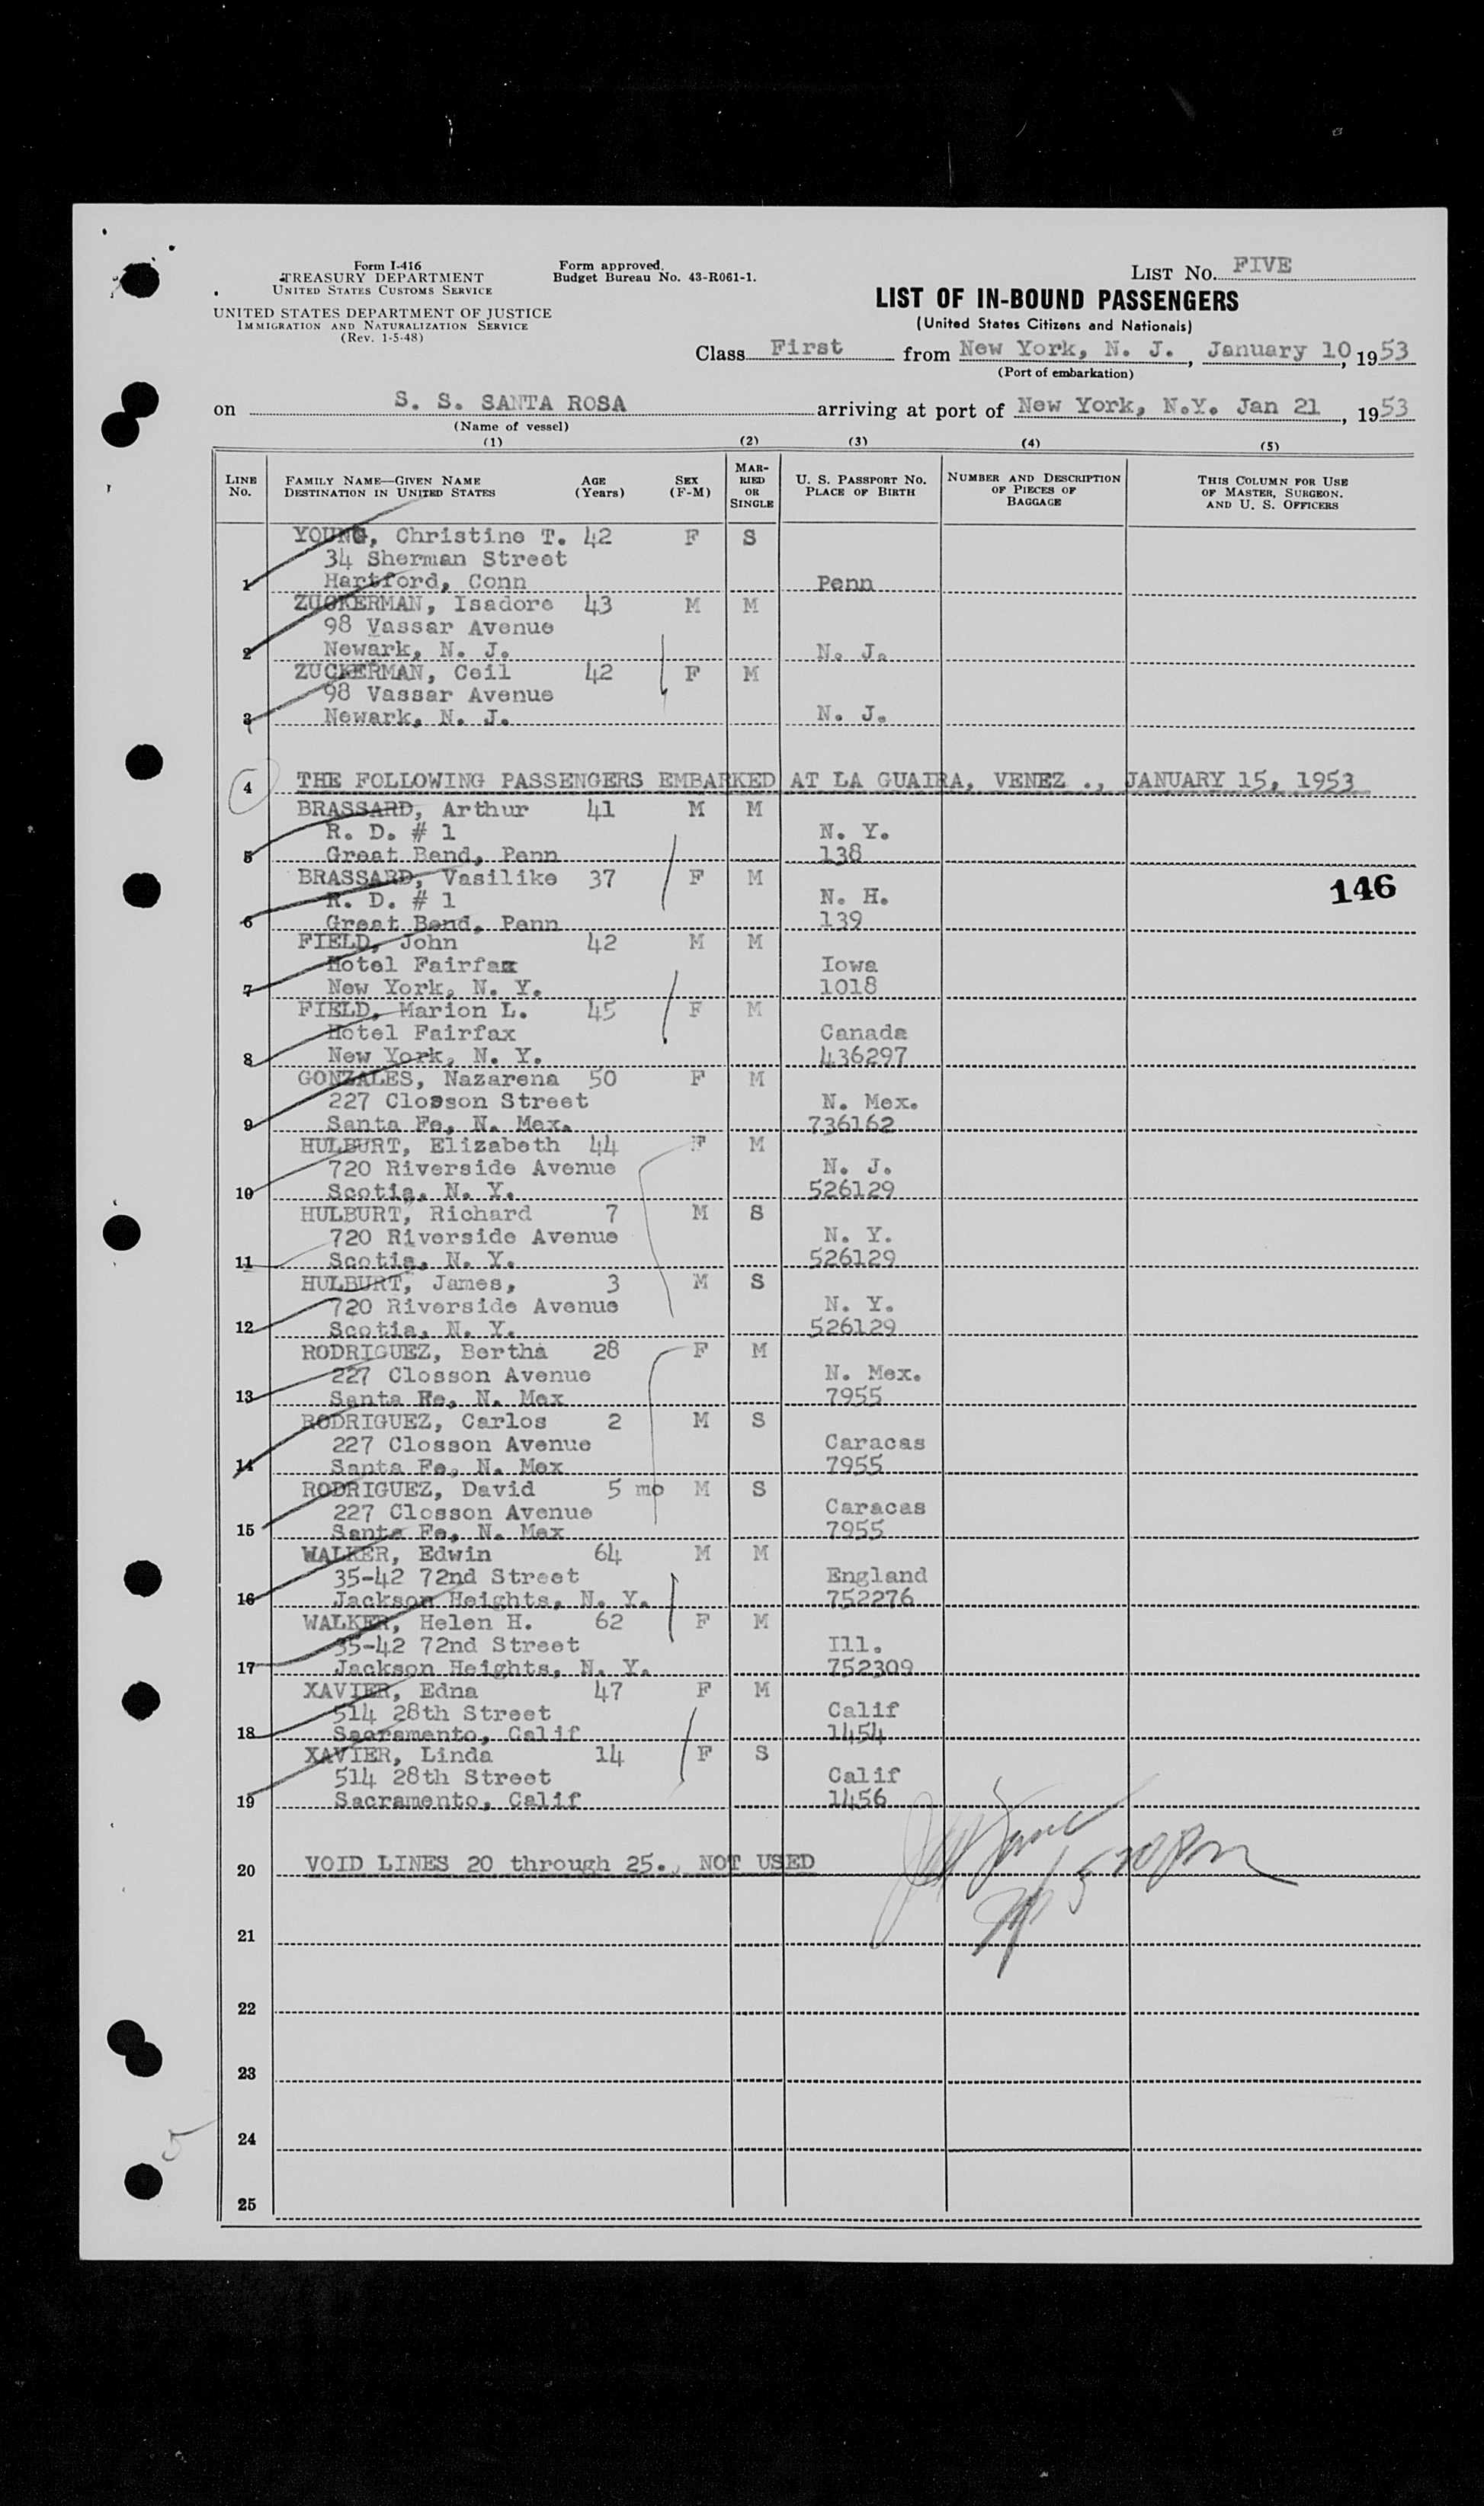 Form I-416
TREASURY DEPARTMENT
UNITED STATES CUSTOMS SERVICE
UNITED STATES DEPARTMENT OF JUSTICE
IMMIGRATION AND NATURALIZATION SERVICE
(Rev. 1-5-48)
Form approved.
Budget Bureau No. 43-R061-1.
LIST NO. FIVE
LIST OF IN-BOUND PASSENGERS
(United States Citizens and Nationals)
Class First from New York, N. J., January 10, 1953
(Port of embarkation)
on S. S. SANTA ROSA arriving at port of New York, N.Y. Jan 21, 1953
(Name of vessel)
(1) (2) (3) (4) (5)
LINE NO. FAMILY NAME—GIVEN NAME DESTINATION IN UNITED STATES AGE (Years) SEX (F-M) MARRIED OR SINGLE U. S. PASSPORT NO. PLACE OF BIRTH NUMBER AND DESCRIPTION OF PIECES OF BAGGAGE THIS COLUMN FOR USE OF MASTER, SURGEON, AND U. S. OFFICERS
YOUNG, Christine T. 42 F S
34 Sherman Street
1 Hartford, Conn Penn
ZUCKERMAN, Isadore 43 M M
98 Vassar Avenue
2 Newark, N. J. N. J.
ZUCKERMAN, Ceil 42 F M
98 Vassar Avenue
3 Newark, N. J. N. J.
4 THE FOLLOWING PASSENGERS EMBARKED AT LA GUAIRA, VENEZ ., JANUARY 15, 1953
BRASSARD, Arthur 41 M M
R. D. # 1 N. Y.
5 Great Bend, Penn 138
BRASSARD, Vasilike 37 F M
146
R. D. # 1 N. H.
6 Great Bend, Penn 139
FIELD, John 42 M M
Hotel Fairfax Iowa
7 New York, N. Y. 1018
FIELD, Marion L. 45 F M
Hotel Fairfax Canada
8 New York, N. Y. 436297
GONZALES, Nazarena 50 F M
227 Closson Street N. Mex.
9 Santa Fe, N. Mex. 736162
HULBURT, Elizabeth 44 F M
720 Riverside Avenue N. J.
10 Scotia, N. Y. 526129
HULBURT, Richard 7 M S
720 Riverside Avenue N. Y.
11 Scotia, N. Y. 526129
HULBURT, James, 3 M S
720 Riverside Avenue N. Y.
12 Scotia, N. Y. 526129
RODRIGUEZ, Bertha 28 F M
227 Closson Avenue N. Mex.
13 Santa Fe, N. Mex 7955
RODRIGUEZ, Carlos 2 M S
227 Closson Avenue Caracas
14 Santa Fe, N. Mex 7955
RODRIGUEZ, David 5 mo M S
227 Closson Avenue Caracas
15 Santa Fe, N. Mex 7955
WALKER, Edwin 64 M M
35-42 72nd Street England
16 Jackson Heights, N. Y. 752276
WALKER, Helen H. 62 F M
35-42 72nd Street Ill.
17 Jackson Heights, N. Y. 752309
XAVIER, Edna 47 F M
514 28th Street Calif
18 Sacramento, Calif 1454
XAVIER, Linda 14 F S
514 28th Street Calif
19 Sacramento, Calif 1456
20 VOID LINES 20 through 25., NOT USED
21
22
23
24
25
5